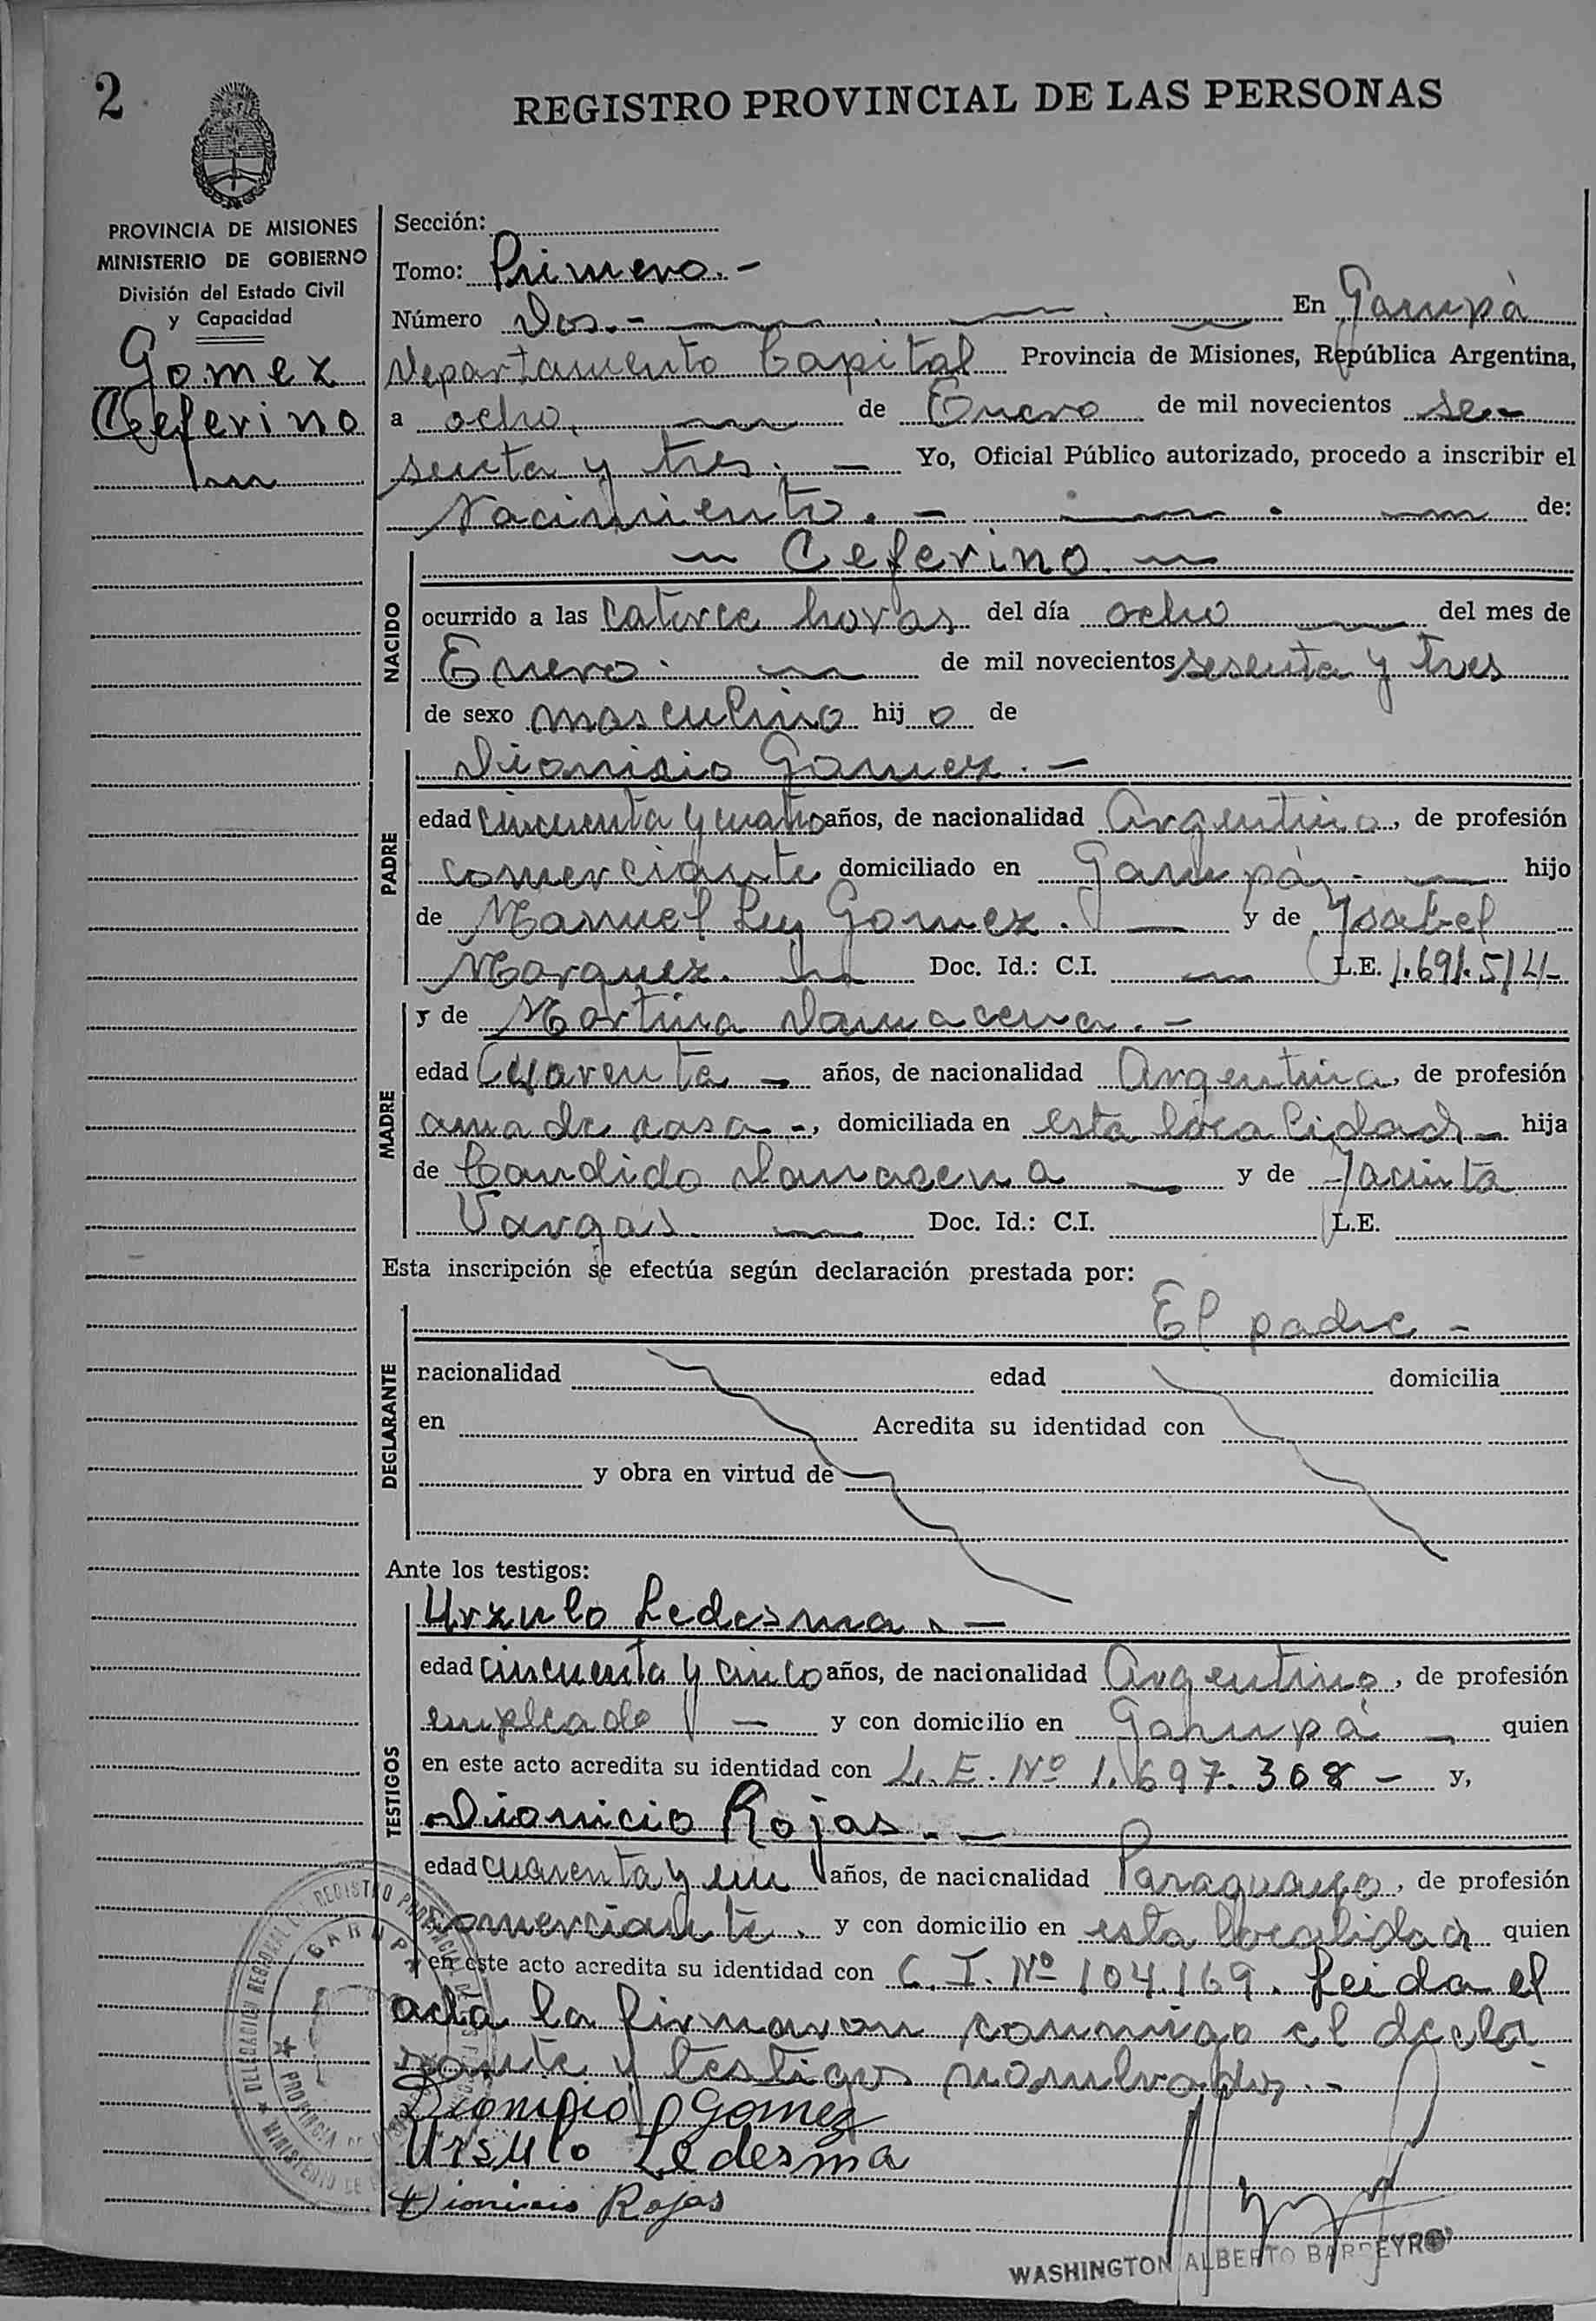 2
REGISTRO PROVINCIAL DE LAS PERSONAS
PROVINCIA DE MISIONES
MINISTERIO DE GOBIERNO
División del Estado Civil
y Capacidad
Gomez
Ceferino
Sección:
Tomo: Primero.-
Número Dos.- En Garupá
Departamento Capital Provincia de Misiones, República Argentina,
a ocho, de Enero de mil novecientos se-
senta y tres. - Yo, Oficial Público autorizado, procedo a inscribir el
Nacimiento. - de:
Ceferino
NACIDO
ocurrido a las catorce horas del día ocho del mes de
Enero. de mil novecientos sesenta y tres
de sexo masculino hij o de
PADRE
Dionisio Gomez. -
edad cincuenta y cuatro años, de nacionalidad Argentino, de profesión
comerciante domiciliado en Garupá. hijo
de Manuel Luy Gomez. y de Ysabel
Marquez. Doc. Id.: C.I. L.E. 1.691.514-
MADRE
y de Martina Damacena. -
edad Cuarenta - años, de nacionalidad Argentina, de profesión
ama de casa -, domiciliada en esta localidad - hija
de Candido Damacena y de Jacinta
Vargas. Doc. Id.: C.I. L.E.
Esta inscripción se efectúa según declaración prestada por:
DECLARANTE
El padre -
nacionalidad edad domicilia
en Acredita su identidad con
y obra en virtud de
Ante los testigos:
TESTIGOS
Urzulo Ledesma. -
edad cincuenta y cinco años, de nacionalidad Argentino, de profesión
empleado - y con domicilio en Garupá - quien
en este acto acredita su identidad con L.E. Nº 1.697.368 - y,
Dionicio Rojas. -
edad cuarenta y un años, de nacionalidad Paraguayo, de profesión
comerciante. y con domicilio en esta localidad quien
en este acto acredita su identidad con C.I. Nº 104.169. Leida el
acta la firmaron conmigo el decla
rante y testigos nombrados. -
Dionisio Gomez
Ursulo Ledesma
Dionisio Rojas
WASHINGTON ALBERTO BARREYRO
GARUPA
PROVINCIA DE